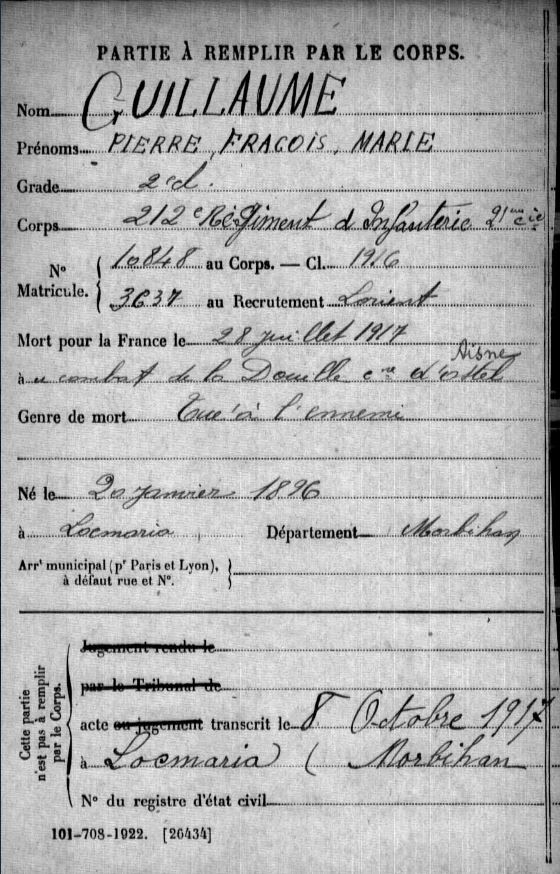 PARTIE À REMPLIR PAR LE CORPS.
Nom GUILLAUME
Prénoms PIERRE, FRACOIS, MARIE
Grade 2e cl.
Corps 212e Régiment d'Infanterie 21eme Cie
N° Matricule. { 10848 au Corps. — Cl. 1916
3637 au Recrutement Lorient
Mort pour la France le 28 juillet 1917
Aisne
à au combat de la Douille cne d'ostel
Genre de mort Tué à l'ennemi
Né le 20 janvier 1896
à Locmaria Département Morbihan
Arrt municipal (pr Paris et Lyon), }
à défaut rue et N°.
Cette partie n'est pas à remplir par le Corps.
Jugement rendu le
par le Tribunal de
acte ou jugement transcrit le 8 Octobre 1917
à Locmaria (Morbihan
N° du registre d'état civil
101-708-1922. [26434]